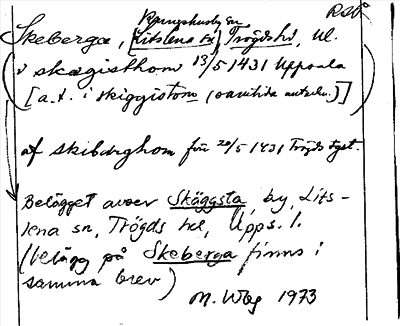 Kungshusby sn
RSÅ
Skeberga, [Litslena sn], Trögds hd, Ul.
i skægisthom 13/5 1431 Uppsala
[a.t. i skiggistom (samtida anteckn.)]
af skibærghom före 20/5 1431 Trögds tgst.
Belägget avser Skäggsta, by, Lits-
lena sn, Trögds hd, Upps. l.
(belägg på Skeberga finns i
samma brev)
M. Wbg 1973